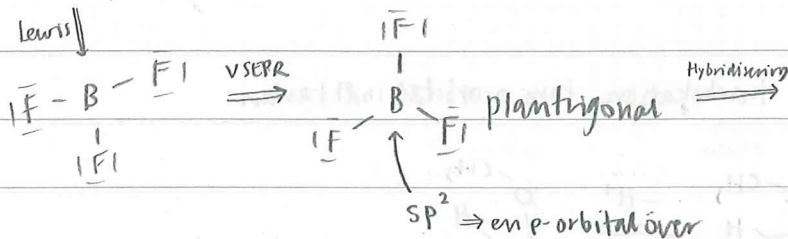 Lewis
|F̅|
|F̲ - B - F̅| VSEPR B plantrigonal Hybridisering
|F̲| |F̲ F̲|
sp² ⇒ en p-orbital över